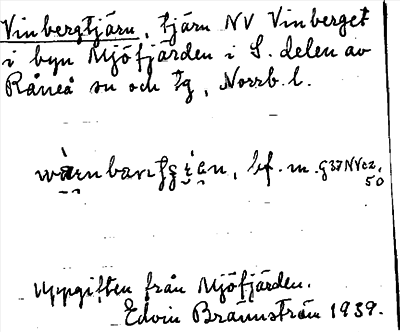 Vinbergtjärn, tjärn NV Vinberget
i byn Mjöfjärden i S. delen av
Råneå sn och tg, Norrb. l.
bf. m. G37NVcz.
50
Uppgiften från Mjöfjärden.
Edvin Brännström 1939.